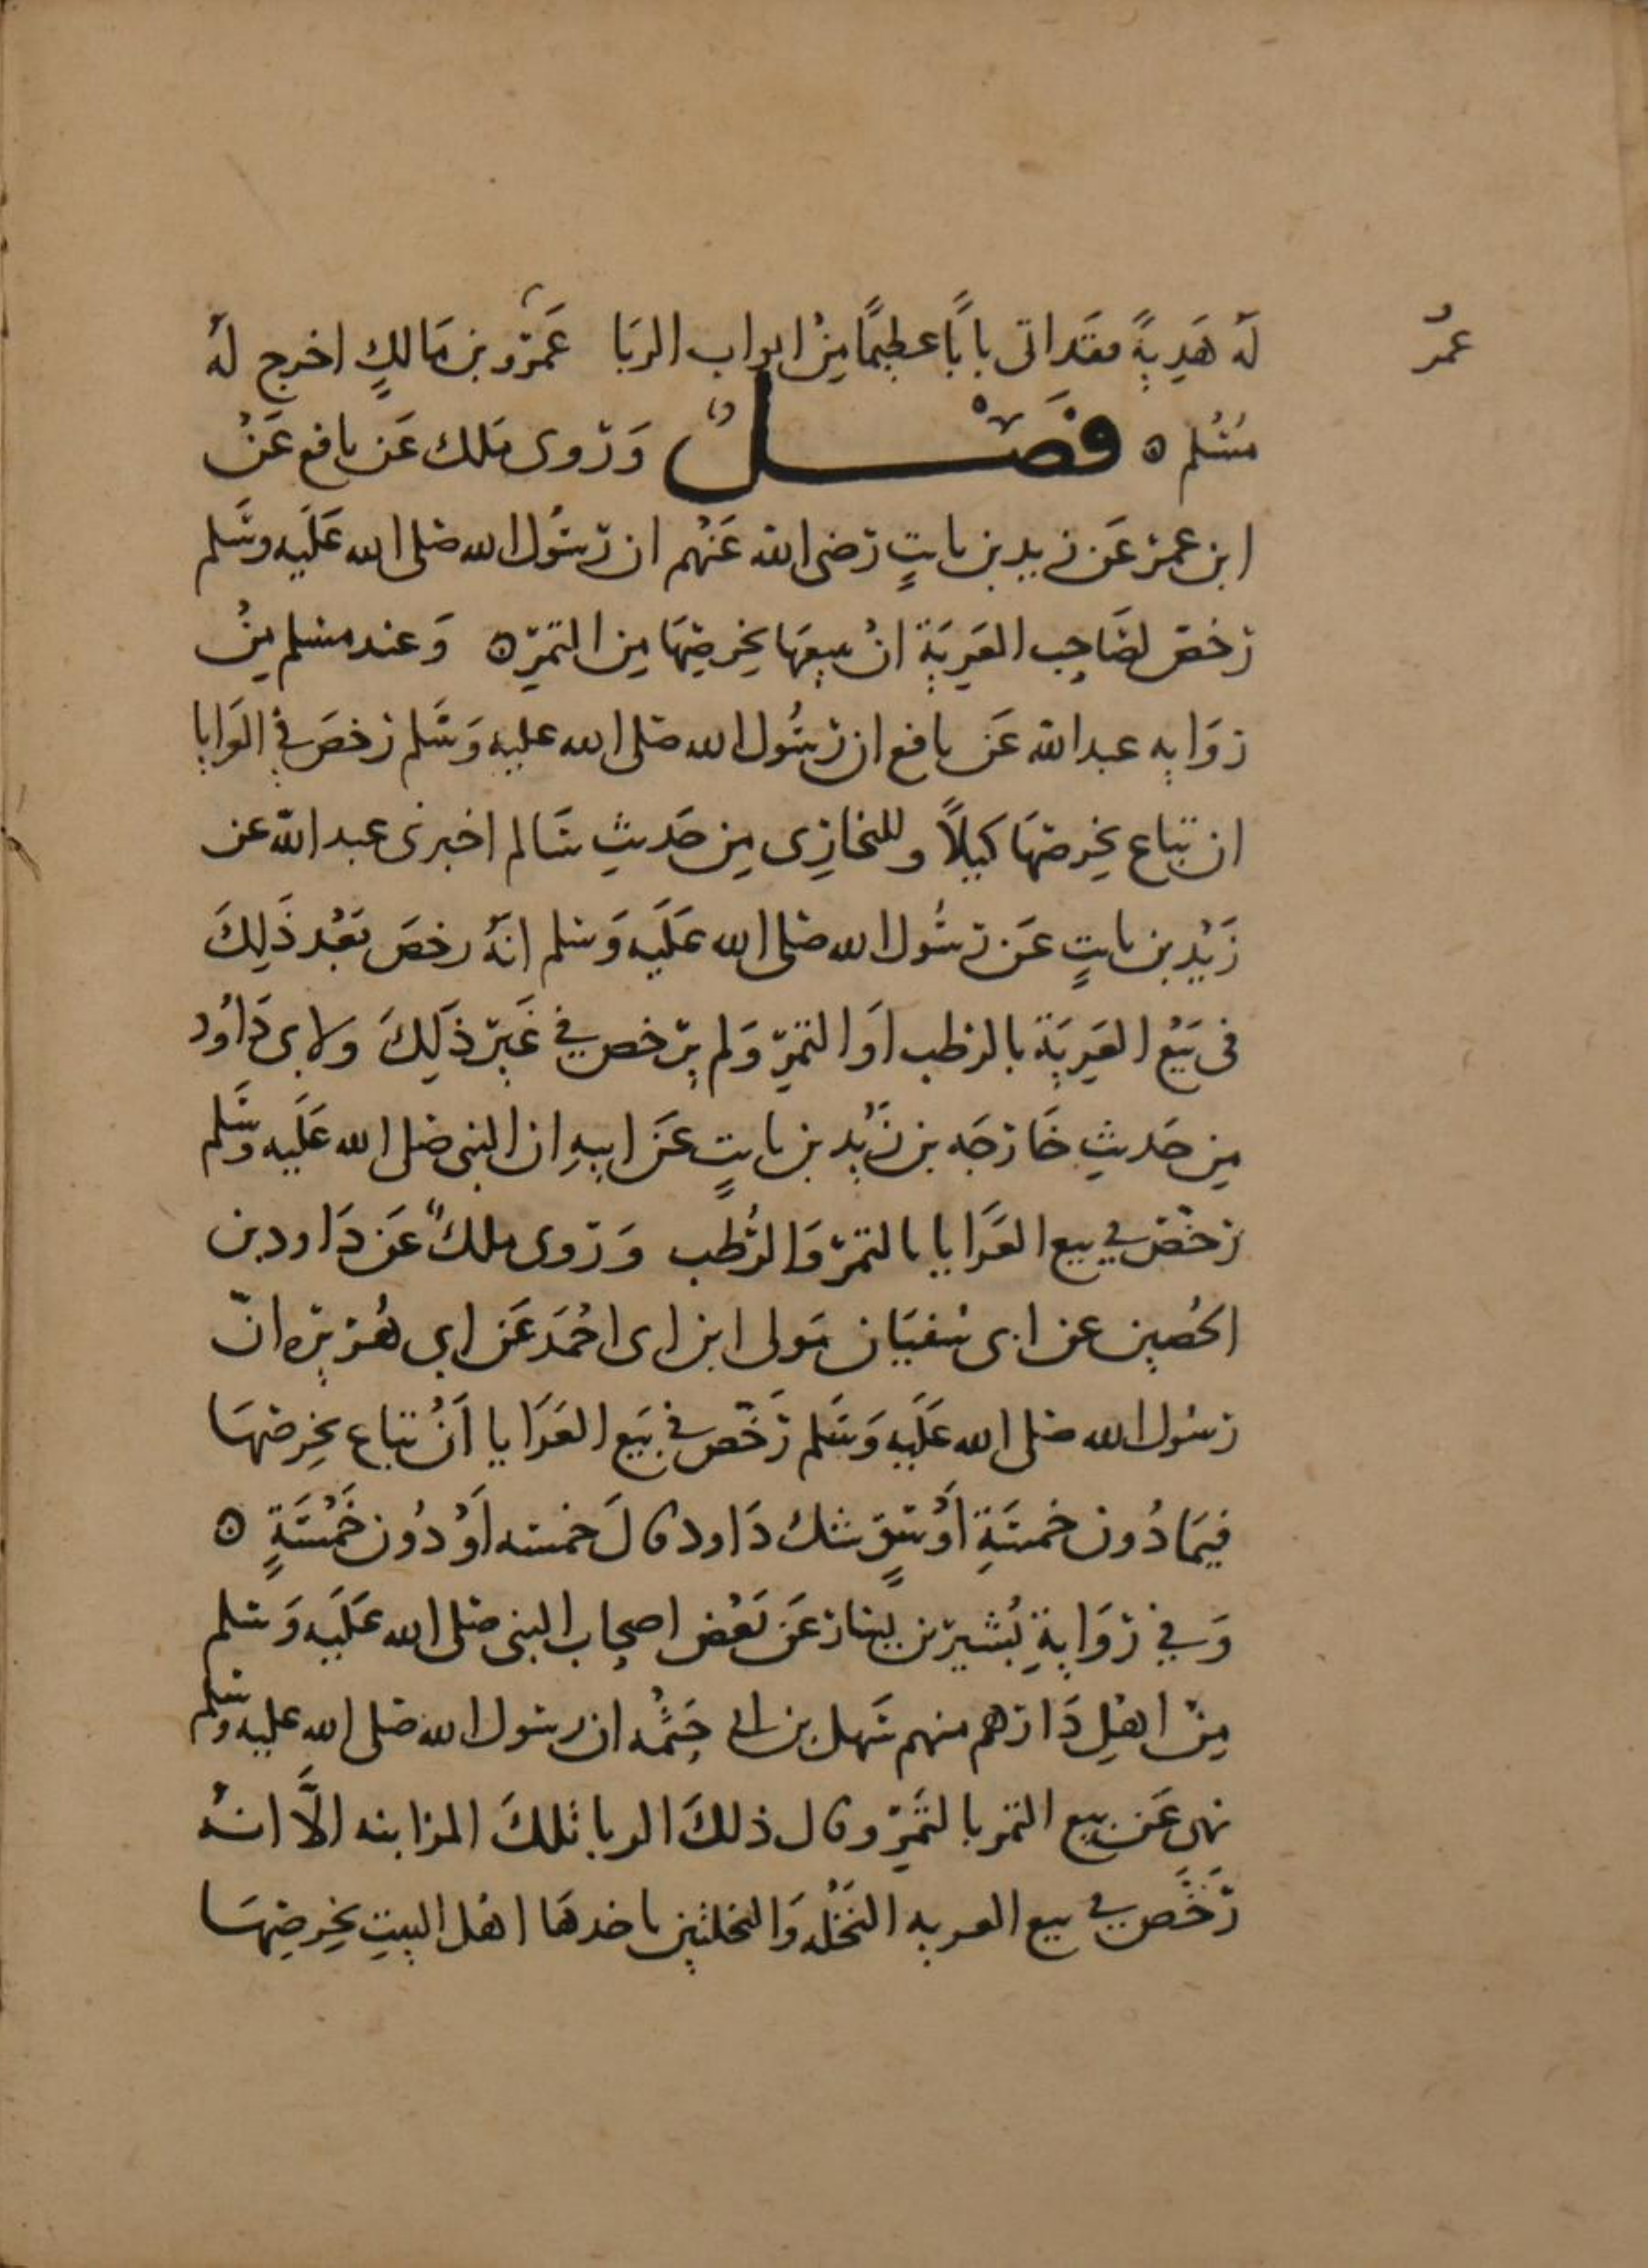 عمر
له هَدِيةً فقَد اتى بابًا عظيمًا مِنْ ابواب الربَا عَمرو بن مَالكٍ اخرج لهُ
مُسْلم ٥ فَصْـــلٌ وَرَوى ملك عَن نافع عَنْ
ابن عمر عَن زيد بن ثابتٍ رَضي الله عَنهُم ان رسُول الله صلى الله عَلَيه وسَّلم
رخص لصَاحِب العَرِيَةِ انْ يبيعهَا بخِرصِهَا مِن التمرِ ٥ وَعند مسلم مِنْ
رِوَايه عبد الله عَن نافع ان رسُول الله صلى الله عليه وَسَّلم رخصَ في الَوايا
ان تباع بخِرصهَا كيلاً وللبخارِى مِن حَديثِ سَالم اخبرنى عبد الله عن
زَيْد بن ثابتٍ عَن رسُول الله صلى الله عَلَيه وَسلم انهُ رخصَ بَعْد ذَلِكَ
فى بَيْع العَرِيَة بالرطب اَو التمرِ وَلم يرخص في غَيرِ ذَلِكَ ولابى دَاوُد
مِن حَديثِ خَارجَه بن زَيْد بن ثابتٍ عَن ابيهِ ان النبى صلى الله عَلَيه وسَّلم
رخصّ في بيع العَرَايا بالتمر وَالرُطب وَرَوى ملكٌ عَن دَاود بن
الحُصين عن ابى سُفيَان مَولى ابن ابى احْمَد عَن ابي هُريره انّ
رسُول الله صلى الله عَلَيه وَسَلم رَخّص في بَيَع العَرَايا اَنْ تباع بخِرصهَا
فيمَا دُون خمسَةِ اَوْسُقٍ شك دَاود قالَ خمسه اَوْ دُون خَمْسَةٍ ٥
وَفي رِوَايةِ بُشَير بن يسَار عَن بَعْض اصحاب النبى صلى الله عَلَيه وَسلم
مِنْ اهْلِ دَارهم منهم سَهل بن ابى حَثْمه ان رسول الله صلى الله عليه وسلم
نهى عَن بيع التمر بالتَمرِ وقال ذلكَ الربا تلكَ المزابنه الَّا انهُ
رَخَّص في بيع العريه النَخْلَه وَالنخلتين ياخدهَا اهْل البيتِ بخِرصِهَا